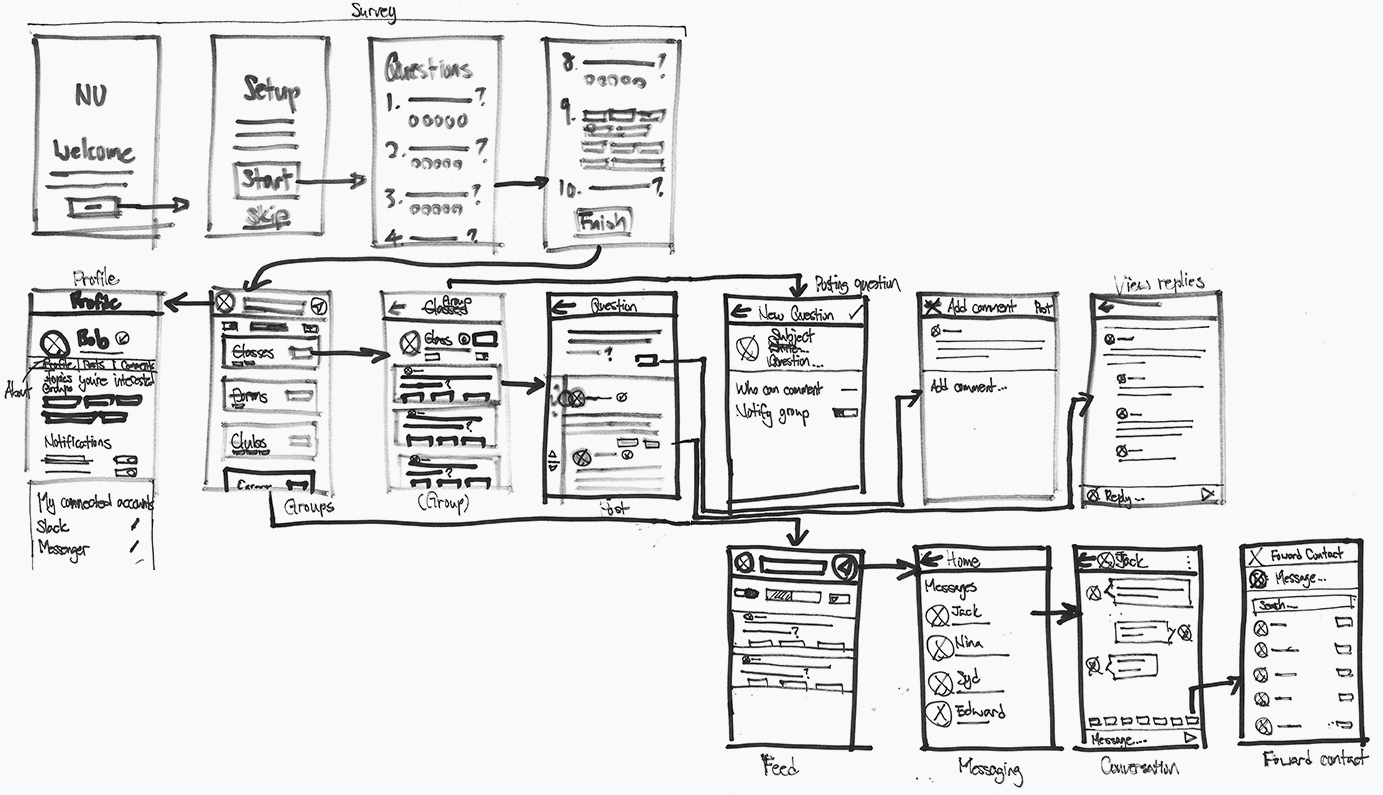 Survey
NU
Welcome
Setup
Start
Skip
Questions
1. ?
2. ?
3. ?
4. ?
8. ?
9.
10. ?
Finish
Profile
Profile
Bob
Profile Posts Comments
About
Topics you're interested
Groups
Notifications
My connected accounts
Slack
Messenger
Classes
Dorms
Clubs
Groups
Group
Classes
Class
?
?
?
(Group)
Question
?
Post
Posting question
New Question
Subject
Question...
Who can comment
Notify group
Add comment Post
Add comment...
View replies
Reply...
?
?
Feed
Home
Messages
Jack
Nina
Syd
Edward
Messaging
Jack
Message....
Conversation
X Foward Contact
Message...
Search...
Foward contact